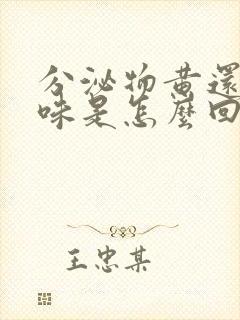 分泌物黄還
味是怎麼回
王忠某